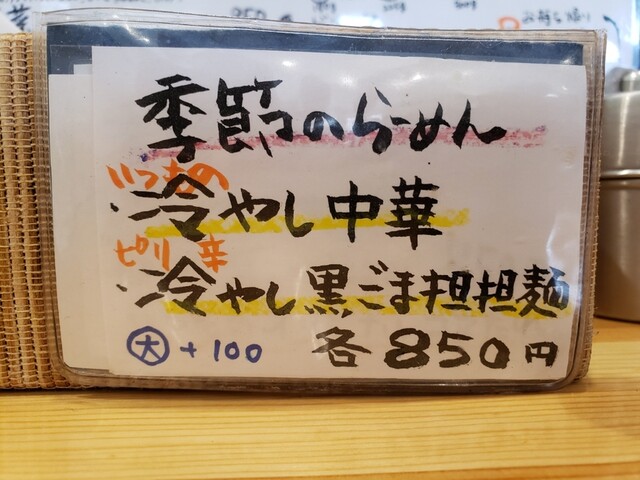 季節のらーめん
いつもの
・冷やし中華
ピリ辛
・冷やし黒ごま担担麺
大 +100 各850円